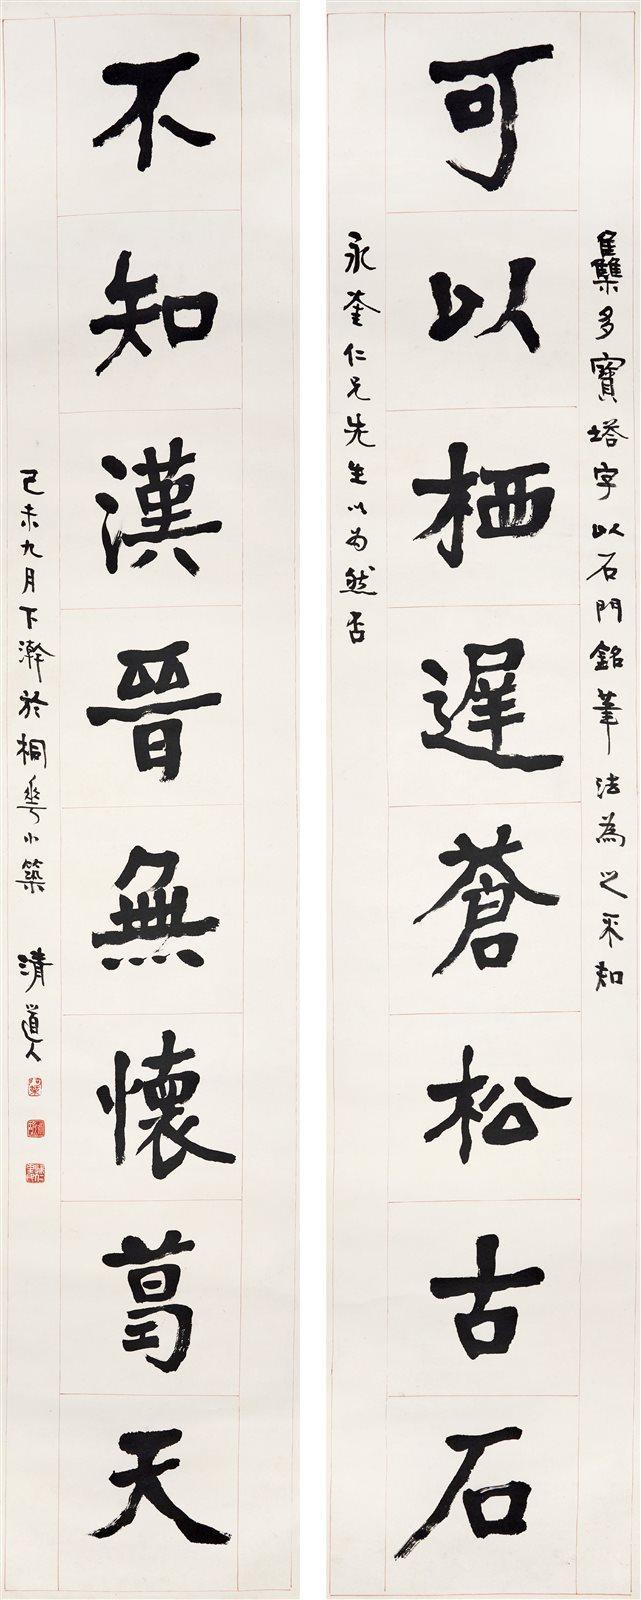 雧多寶塔字以石門銘筆法為之未知
可以栖遲蒼松古石
永奎仁兄先生以为然否
不知漢晉無懷葛天
己未九月下澣於桐華小築 清道人